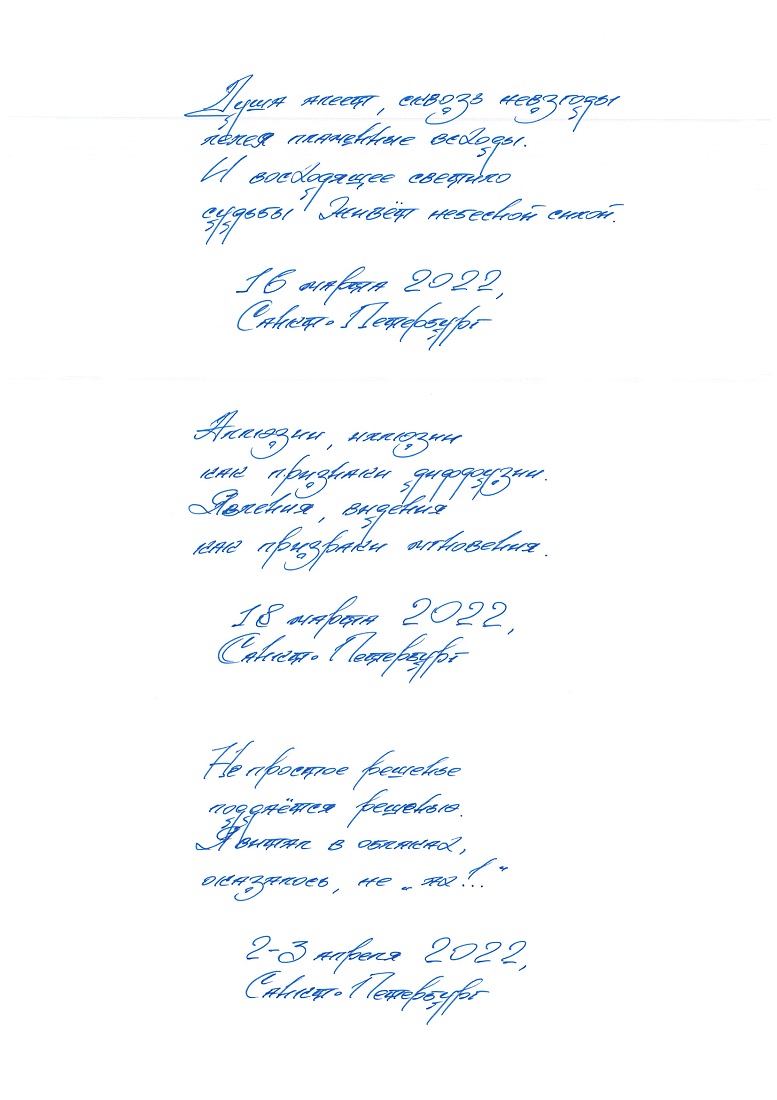 Душа алеет, сквозь невзгоды
лелея пламенные всходы.
И восходящее светило
судьбы живёт небесной силой.
16 марта 2022,
Санкт-Петербург
Аллюзии, иллюзии
как признаки диффузии.
Явления, видения
как призраки мгновения.
18 марта 2022,
Санкт-Петербург
Не простое решенье
поддаётся решенью.
Я витал в облаках,
оказалось, не „ах!..“
2-3 апреля 2022,
Санкт-Петербург